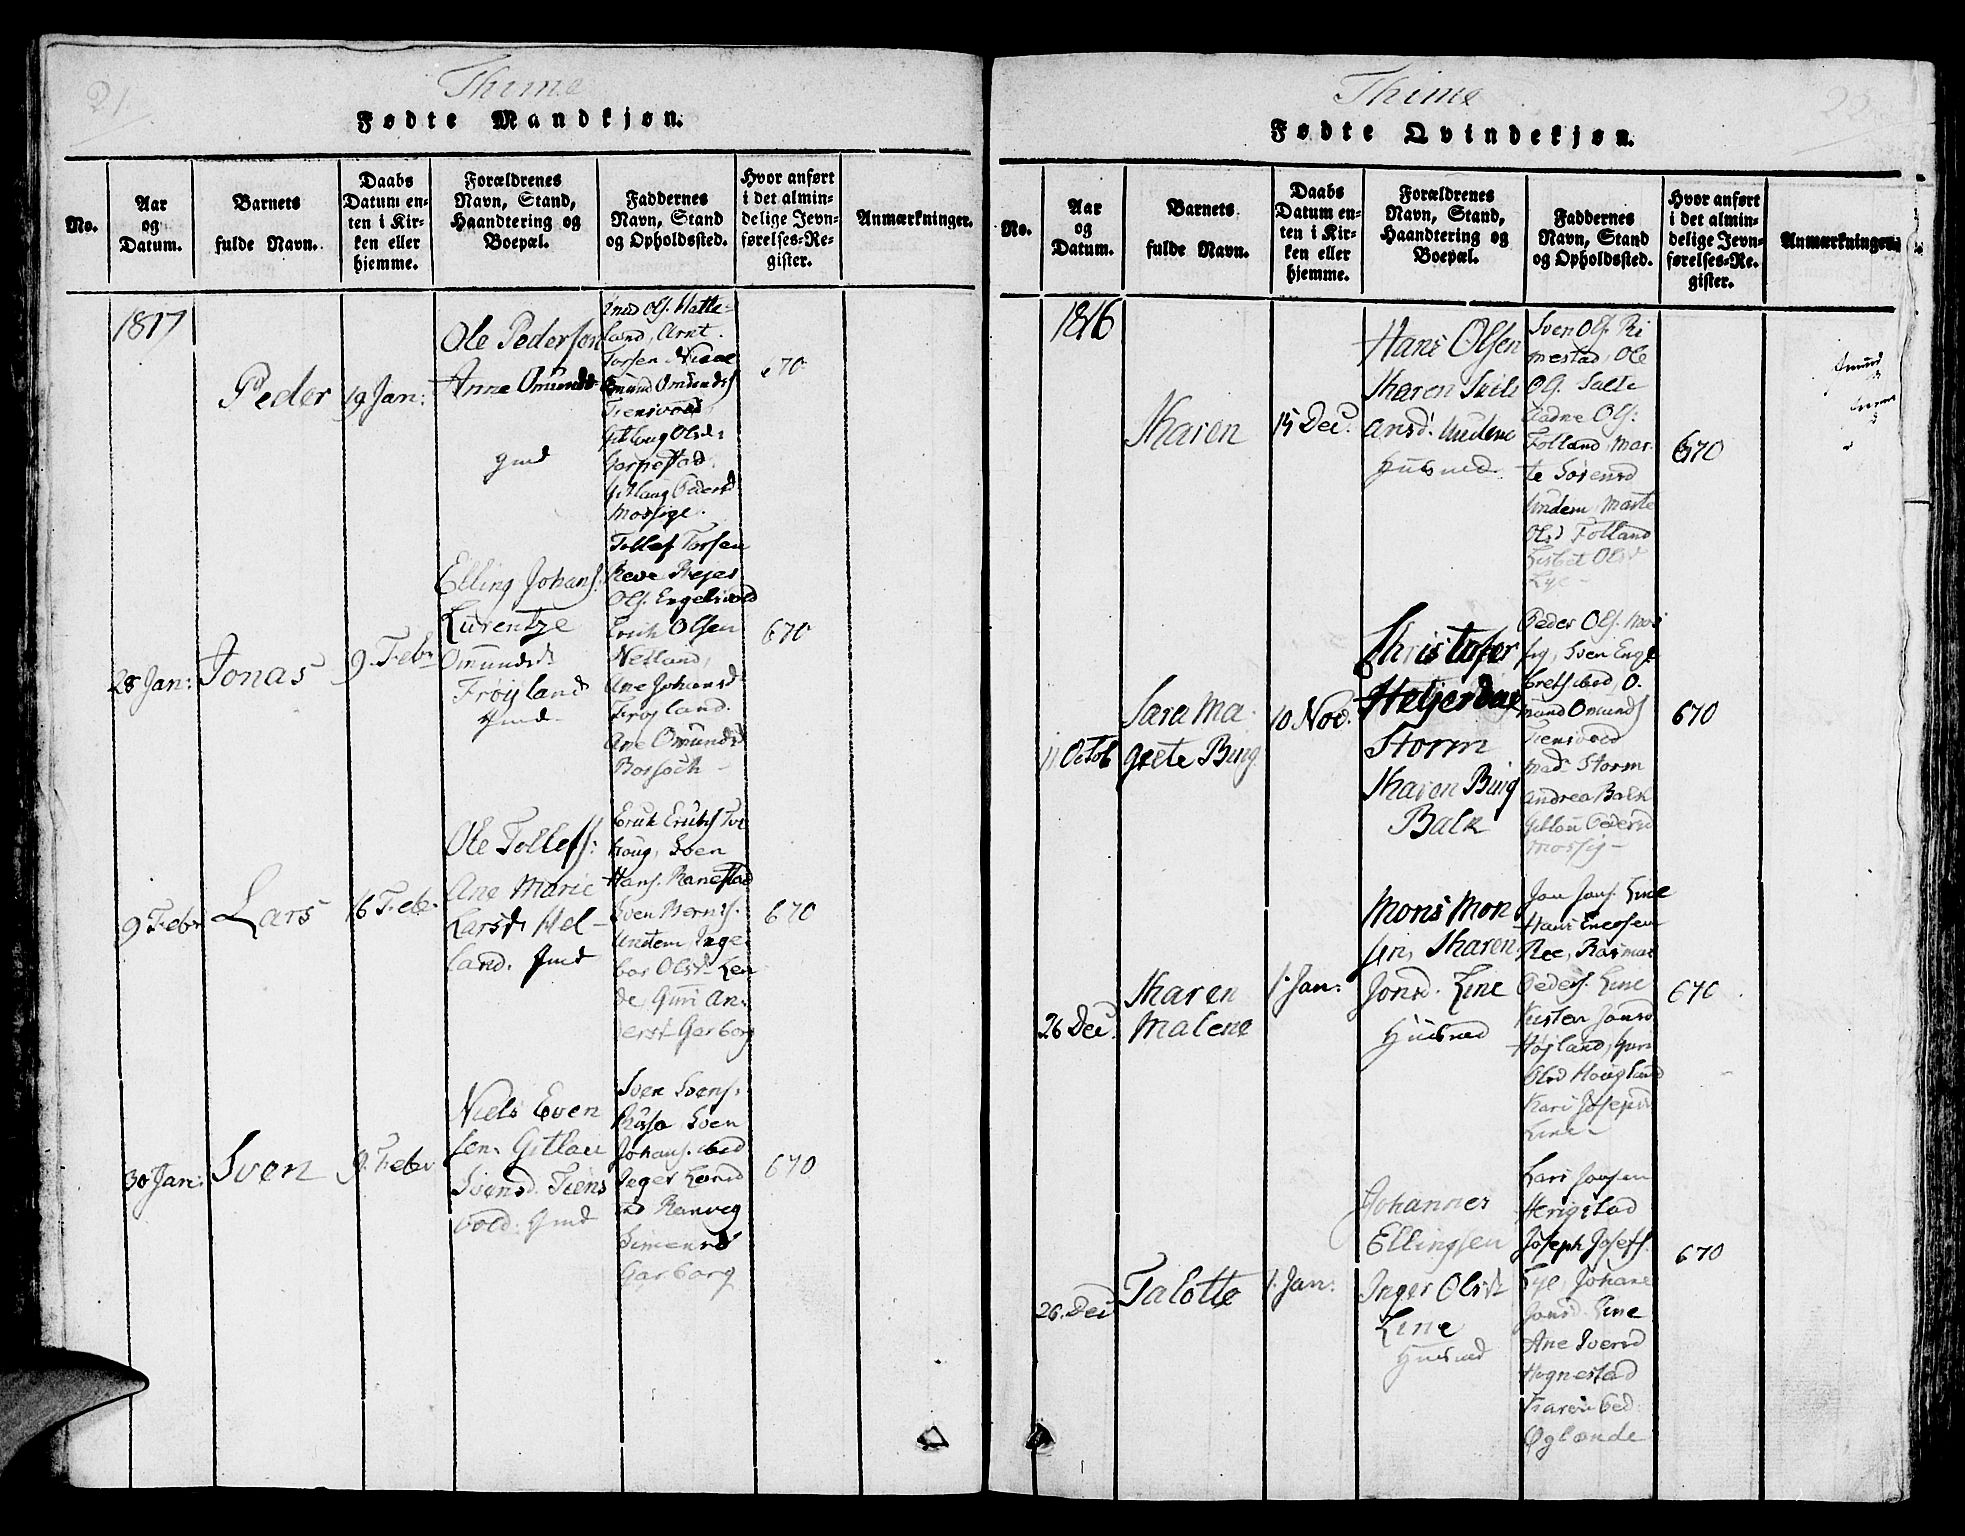 21.
Thime
Fødte Mandkjøn.
No.
Aar
og
Datum.
Barnets
fulde Navn.
Daabs
Datum en-
ten i Kir-
ken eller
hjemme.
Forældrenes
Navn, Stand,
Haandtering og
Boepæl.
Faddernes
Navn, Stand
og Opholdssted.
Hvor anført
i det almin-
delige Jevn-
førelses-Re-
gister.
Anmærkninger.
1817
Peder
19 Jan:
Ole Pedersen
Anne Omunds
gmd
Olf. Hatle-
land, Arnt
Torsen
Omunds
Tiensvold
Olsd:
Garpestad
Pedersd
Mossige.
670
28 Jan:
Jonas
9. Febr
Elling Johans:
Lurentze
Omundsd:
Frøyland
Gmd
Tollef Torsen
Reve
Ols. Engelsvold
Erich Olsen
Netland,
Ane Johansd
Frøyland.
Ane Omundsd
670
9 Febr
Lars
16 Febr
Ole Tollefs:
Ane Marie
Larsd. Hel-
land. Gmd
Erik Eriks Tve
houg, Sven
Hans. Ranestad
Sven Bernts.
Undem, Inge
bor Olsd. Len
de, Guri An-
ersd Garborg
670
30 Jan:
Sven
9. Febr
Niels Even
sen. Gitlau
Svensd. Tiens
vold. Gmd
Sven Svens.
Sven
Johans. ibid
Inger
Ranveg
Simensd
Garborg
670
22
Thime
Fødte Qvindekjøn.
No.
Aar
og
Datum.
Barnets
fulde Navn.
Daabs
Datum en-
ten i Kir-
ken eller
hjemme.
Forældrenes
Navn, Stand,
Haandtering og
Boepæl.
Faddernes
Navn, Stand
og Opholdssted.
Hvor anført
i det almin-
delige Jevn-
førelses-Re-
gister.
Anmærkninger.
1816
Karen
15 Dec.
Hans Olsen
Karen Seili
ansd. Undem
Huusmd.
Sven Ols. Ri
mestad, Ole
Ols. Salte
Ols:
Folland, Mar-
te Sørensd
Undem, Marte
Olsd Folland
Lisbet Olsd
Lye
670
11 Octob
Sara Ma-
grete Bing
10 Nov.
Christofer
Hetjerdae
Storm
Karen Bing
Balk
Peder Ols. Mos
sig, Sven Enge
bretsibid, O-
mund Omunds
Tiensvold
Mad. Storm
Andrea Balk
Gitlau Pedersd
Mossig
670
26 Dec.
Karen
Malene
1. Jan:
Mons Mon
sen, Karen
Jonsd. Line
Huusmd
Jon Jons. Line
Hans Enersen
Ree, Rasmus
Peders. Line
Kirsten Jonsd
Højland, Guri
Olsd Houglund
Kari Josepsd
Line
670
26. Dec
Talette
1. Jan:
Johannes
Ellingsen
Inger Olsd
Line
Huusmd
Lars Jonsen
Herigstad
Joseph Josefs.
Lye, Johane
Jonsd. Line
Ane Iversd
Hognestad
Karen Ped.
Øglænde
670